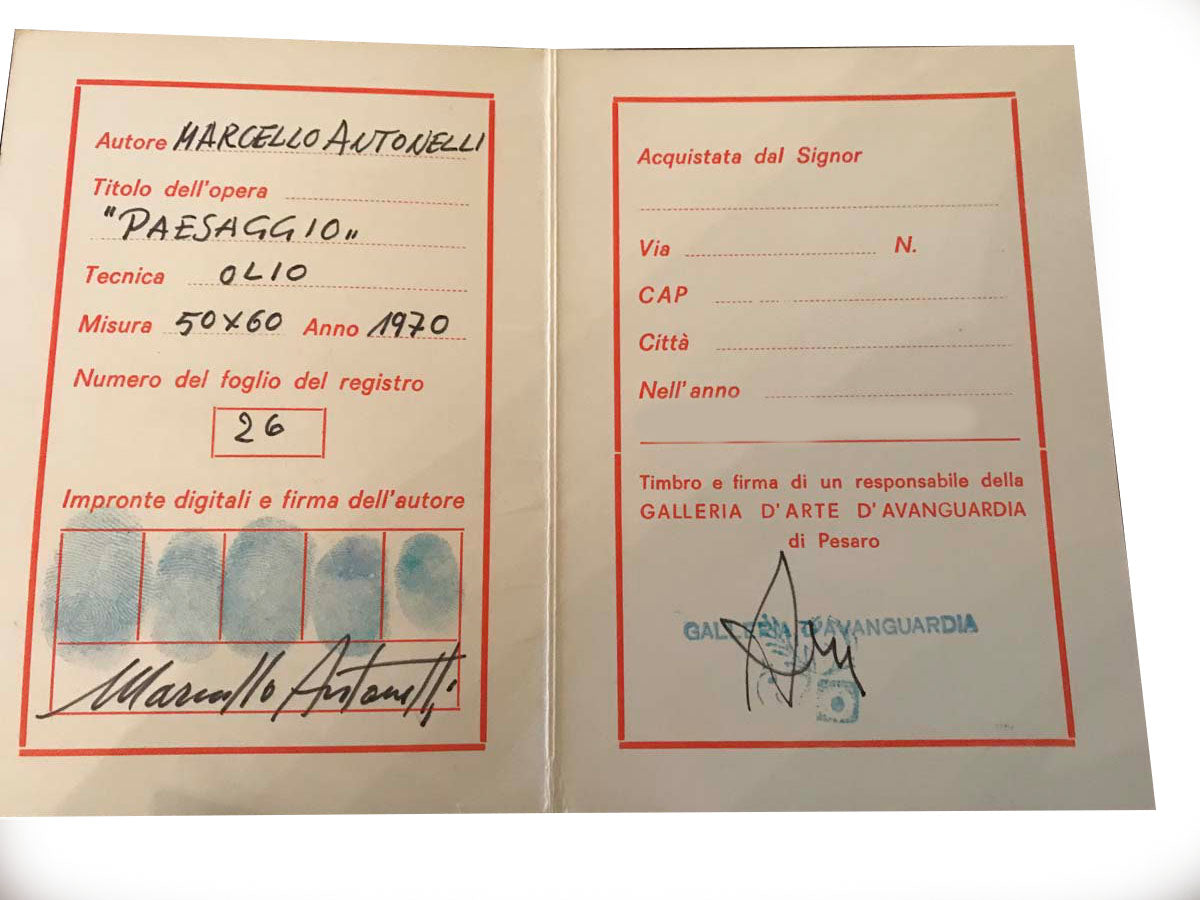 Autore MARCELLO ANTONELLI
Titolo dell'opera
"PAESAGGIO"
Tecnica OLIO
Misura 50x60 Anno 1970
Numero del foglio del registro
26
Impronte digitali e firma dell'autore
Marcello Antonelli
Acquistata dal Signor
Via N.
CAP
Città
Nell'anno
Timbro e firma di un responsabile della
GALLERIA D'ARTE D'AVANGUARDIA
di Pesaro
GALLERIA D'AVANGUARDIA